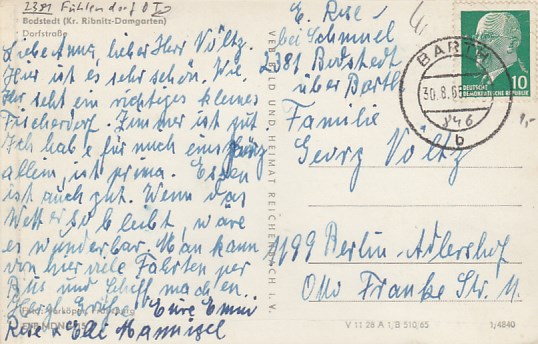 2381 Fuhlendorf
Bodstedt (Kr. Ribnitz-Damgarten)
Dorfstraße
Liebe Anna, lieber Herr Völtz.
Hier ist es sehr schön. Wie
Ihr seht ein richtiges kleines
Fischerdorf. Zimmer ist gut
Ich habe für mich eins ganz
allein, ist prima. Essen
ist auch gut. Wenn das
Wetter so bleibt, wäre
es wunderbar. Man kann
von hier viele Fahrten per
Bus und Schiff machen.
Herzl. Grüße Eure Emmi
Rese
VEB BILD UND HEIMAT REICHENBACH I. V.
E. Rese
bei
2381 Bodstedt
über Barth
Familie
Georg Völtz
1199 Berlin-Adlershof
Otto Franke Str. 11
BARTH
30.8.65
846
b
10
DEUTSCHE
DEMOKRATISCHE REPUBLIK
V 11 28 A 1/B 510/65
1/4840